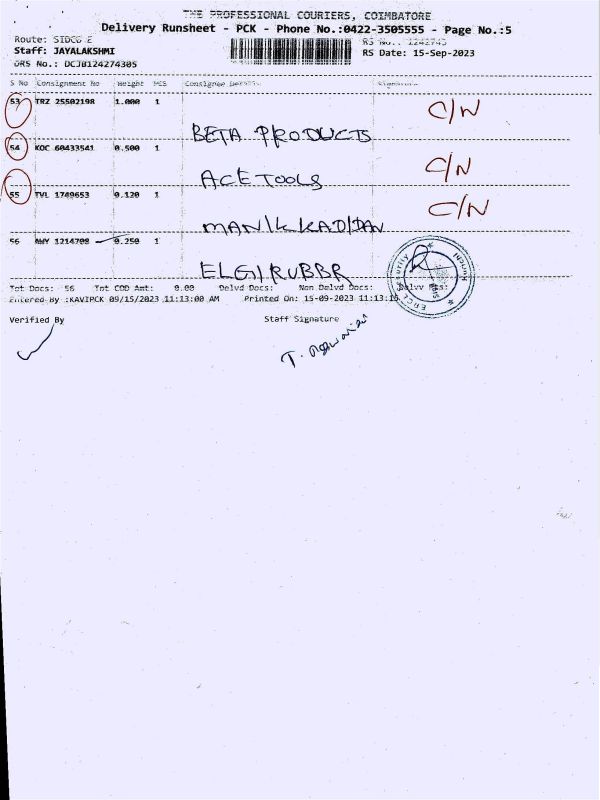 THE PROFESSIONAL COURIERS, COIMBATORE
Delivery Runsheet - PCK - Phone No.:0422-3505555 - Page No.:5
Route: SIDCO E
RS No.: 1242743
Staff: JAYALAKSHMI
RS Date: 15-Sep-2023
DRS No.: DCJB124274305
S No Consignment No Weight PCS Consignee Details Signature
53 TRZ 25502198 1.000 1 C/N
BETA PRODUCTS
54 KOC 60433541 0.500 1 C/N
ACE TOOLS
55 TVL 1749653 0.120 1 C/N
MANIKKADIDAN
56 AWY 1214708 0.250 1
ELGI RUBBR
Tot Docs: 56 Tot COD Amt: 0.00 Delvd Docs: Non Delvd Docs: Delvv
Entered By :KAVIPCK 09/15/2023 11:13:00 AM Printed On: 15-09-2023 11:13:
Verified By Staff Signature
T.
Security